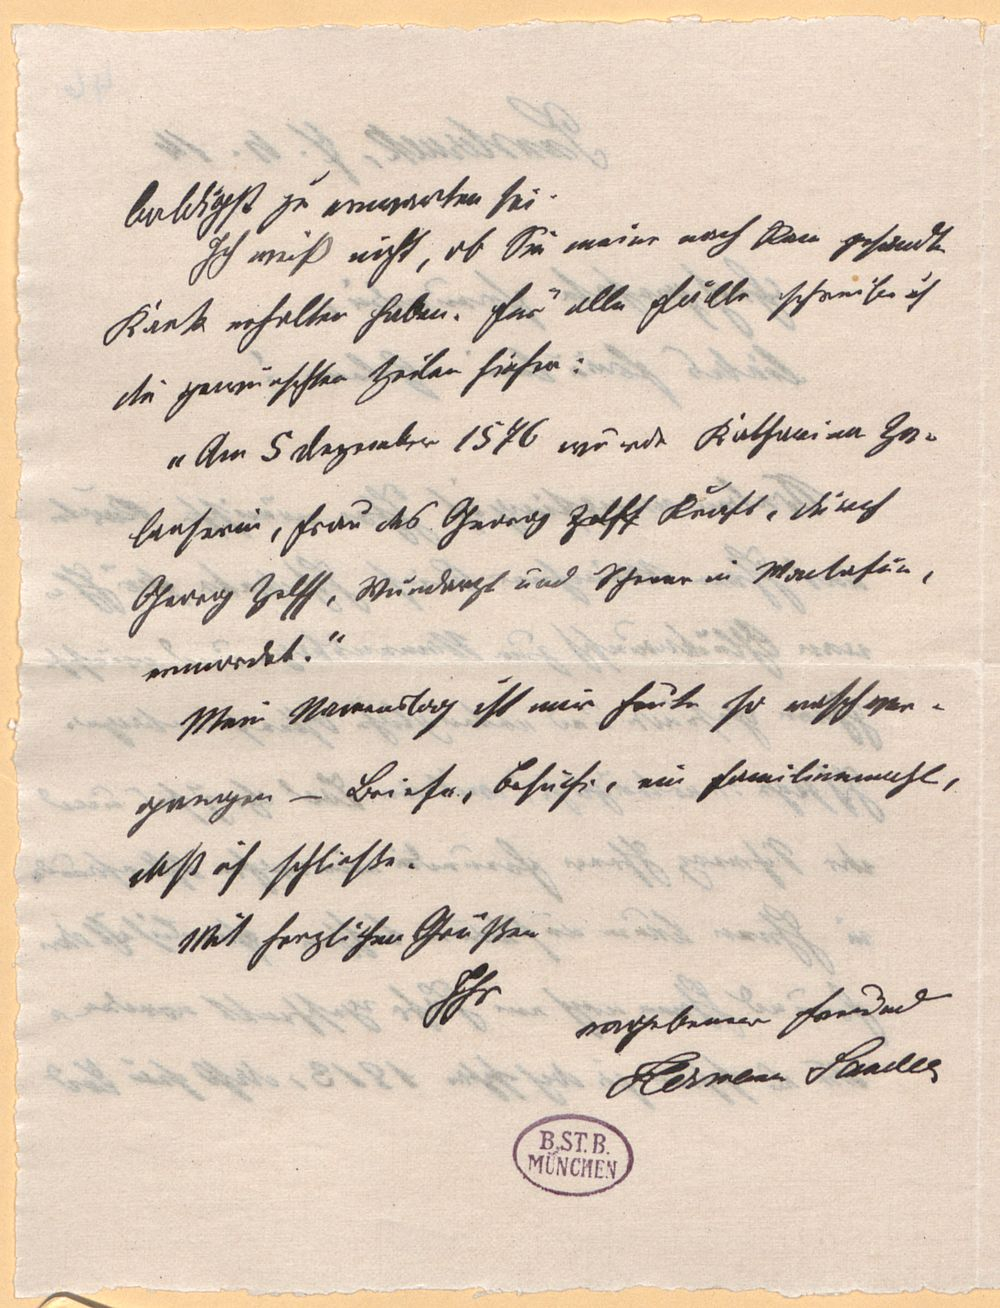 baldigst zu erwarten sei.
Ich weiß nicht, ob Sie meine nach Rom gesandte
Karte erhalten haben. Für alle Fälle schreibe ich
die gewünschten Zeilen hieher:
"Am 5 Dezember 1576 wurde Katharina Za-
lanserin, Frau des Georg Zelff Kraft, durch
Georg Zelff, Wundarzt und Scherer in Montafun,
ermordet."
Mein Namenstag ist mir heute so rasch ver-
gangen – Briefe, Besuche, ein Familienmahl,
daß ich schließe.
Mit herzlichen Grüßen
Ihr
ergebener Freund
Hermann Sander
B.ST.B.
MÜNCHEN